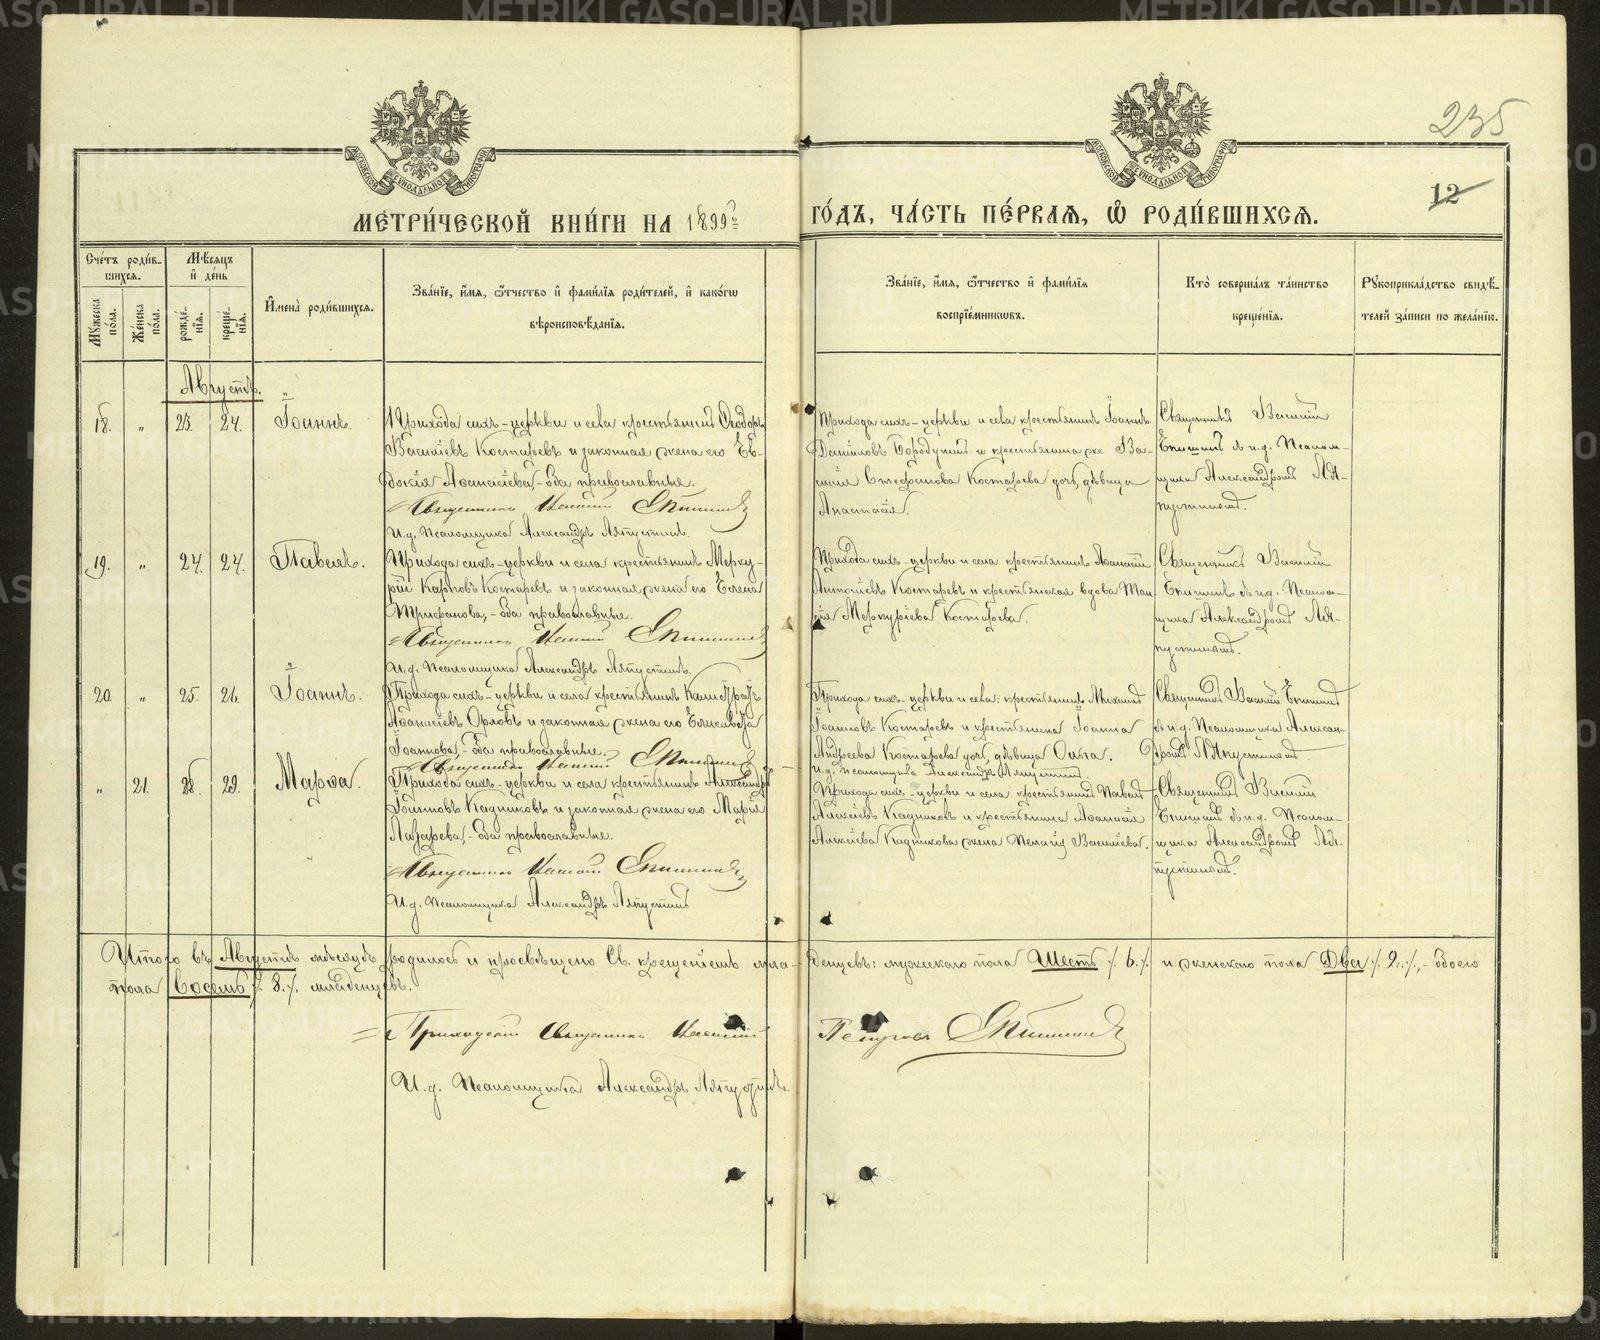 235
12
МЕТРИ́ЧЕСКОЙ КНИ́ГИ НА 1899й ГО́ДЪ, ЧА́СТЬ ПЕ́РВАЯ, Ѡ РОДИ́ВШИХСЯ.
Сче́тъ роди́в-
шихся.
Мѣ́сяцъ
и де́нь
Мꙋжеска по́ла.
Же́нска по́ла.
рожде́-
нїя.
креще́-
нїя.
И́мена̀ роди́вшихся.
Зва́нїе, и́мя, ѻ́тчество и фами́лїя роди́телей, и како́гѡ
вѣроисповѣ́данїя.
Зва́нїе, и́мя, ѻ́тчество и фами́лїя
воспрїе́мникѡвъ.
Кто̀ соверша́лъ та́инство
креще́нїя.
Рꙋкоприкла́дство свидѣ́-
телей за́писи по жела́нїю.
Августъ.
18. „ 23. 24. Іоаннъ.
Прихода сихъ-церкви и села крестьянинъ Ѳеодоръ
Василіевъ Костаревъ и законная жена его Ев-
докія Аѳанасіева,-оба православные.
Священникъ Василій Епишинъ
И.д. Псаломщика Александръ Ляпустинъ.
Прихода сихъ-церкви и села крестьянинъ Іоаннъ
Даніиловъ Бородулинъ и крестьянина же Ва-
силія Стефанова Костарева дочь, дѣвица
Анастасія.
Священникъ Василій
Епишинъ съ и.д. Псалом-
щика Александромъ Ля-
пустинымъ.
19. „ 24. 24. Павелъ.
Прихода сихъ-церкви и села крестьянинъ Мерку-
рій Карповъ Костаревъ и законная жена его Елена
Трифонова,-оба православные.
Священникъ Василій Епишинъ
И.д. Псаломщика Александръ Ляпустинъ.
Прихода сихъ-церкви и села крестьянинъ Аѳанасій
Костаревъ и крестьянская вдова
Меркуріева Костарева.
Священникъ Василій
Епишинъ съ и.д. Псалом-
щика Александромъ Ля-
пустинымъ.
20. „ 25. 26. Іоаннъ.
Прихода сихъ-церкви и села крестьянинъ Калистратъ
Аѳанасіевъ Орловъ и законная жена его Елисавета
Іоаннова,-оба православные.
Священникъ Василій Епишинъ
Прихода сихъ-церкви и села: крестьянинъ Михаилъ
Іоанновъ Костаревъ и крестьянина Іоанна
Андреева Костарева дочь, дѣвица
И.д. псаломщика Александръ Ляпустинъ.
Священникъ Василій Епишинъ
съ и.д. Псаломщика Алексан-
дромъ Ляпустинымъ
„ 21. 28. 29. Марѳа.
Прихода сихъ-церкви и села крестьянинъ Александръ
Іоанновъ Кадниковъ и законная жена его Марія
Лазарева,-оба православные.
Священникъ Василій Епишинъ
И.д. Псаломщика Александръ Ляпустинъ
Прихода сихъ-церкви и села крестьянинъ Павелъ
Алексіевъ Кадниковъ и крестьянина Аѳанасія
Алексіева Кадникова жена Пелагія Василіева.
Священникъ Василій
Епишинъ съ и.д. Псалом-
щика Александромъ Ля-
пустинымъ.
Итого въ Августѣ мѣсяцѣ родилось и просвѣщено Св. крещеніемъ мла-денцевъ: мужескаго пола Шесть /. 6 /. и женскаго пола Два /. 2. /.,-обоего
пола Восемь /. 8 /. младенцевъ.
Приходскій Священникъ Василій Петровъ Епишинъ
И.д. Псаломщика Александръ Ляпустинъ.